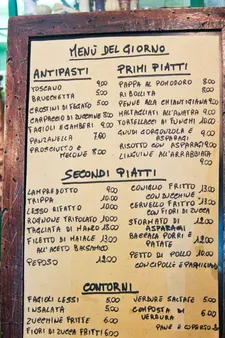 MENÙ DEL GIORNO
ANTIPASTI
TOSCANO 9.00
BRUSCHETTA 5.00
CROSTINI DI FEGATO 5.00
CARPACCIO DI ZUCCHINE 8.00
FAGIOLI E GAMBERI 9.00
PANZANELLA 7.00
PROSCIUTTO E
MELONE 8.00
PRIMI PIATTI
PAPPA AL POMODORO 8.00
RIBOLLITA 8.00
PENNE ALLA CHIANTIGIANA 9.00
MALTAGLIATI ALL'ANATRA 9.00
TORTELLACCI DI FUNGHI 10.00
GNUDI GORGONZOLA E
ASPARAGI 9.00
RISOTTO CON ASPARAGI 9.00
LINGUINE ALL'ARRABBIATA
9.00
SECONDI PIATTI
LAMPREDOTTO 9.00
TRIPPA 10.00
LESSO RIFATTO 10.00
ROGNONE TRIFOLATO 10.00
TAGLIATA DI MANZO 18.00
FILETTO DI MAIALE 13.00
ALL'ACETO BALSAMICO
PEPOSO 12.00
CONIGLIO FRITTO 13.00
CON FIORI DI ZUCCA
CERVELLO FRITTO 13.00
CON FIORI DI ZUCCA
SFORMATO DI 12.00
ASPARAGI
PORRI E
PATATE 12.00
PETTO DI POLLO 10.00
CON CIPOLLE E PARMIGIANO
CONTORNI
FAGIOLI LESSI 5.00
INSALATA 5.00
ZUCCHINE FRITTE 6.00
FIORI DI ZUCCA FRITTI 6.00
VERDURE SALTATE 5.00
COMPOSTA DI 6.00
VERDURA
PANE E COPERTO